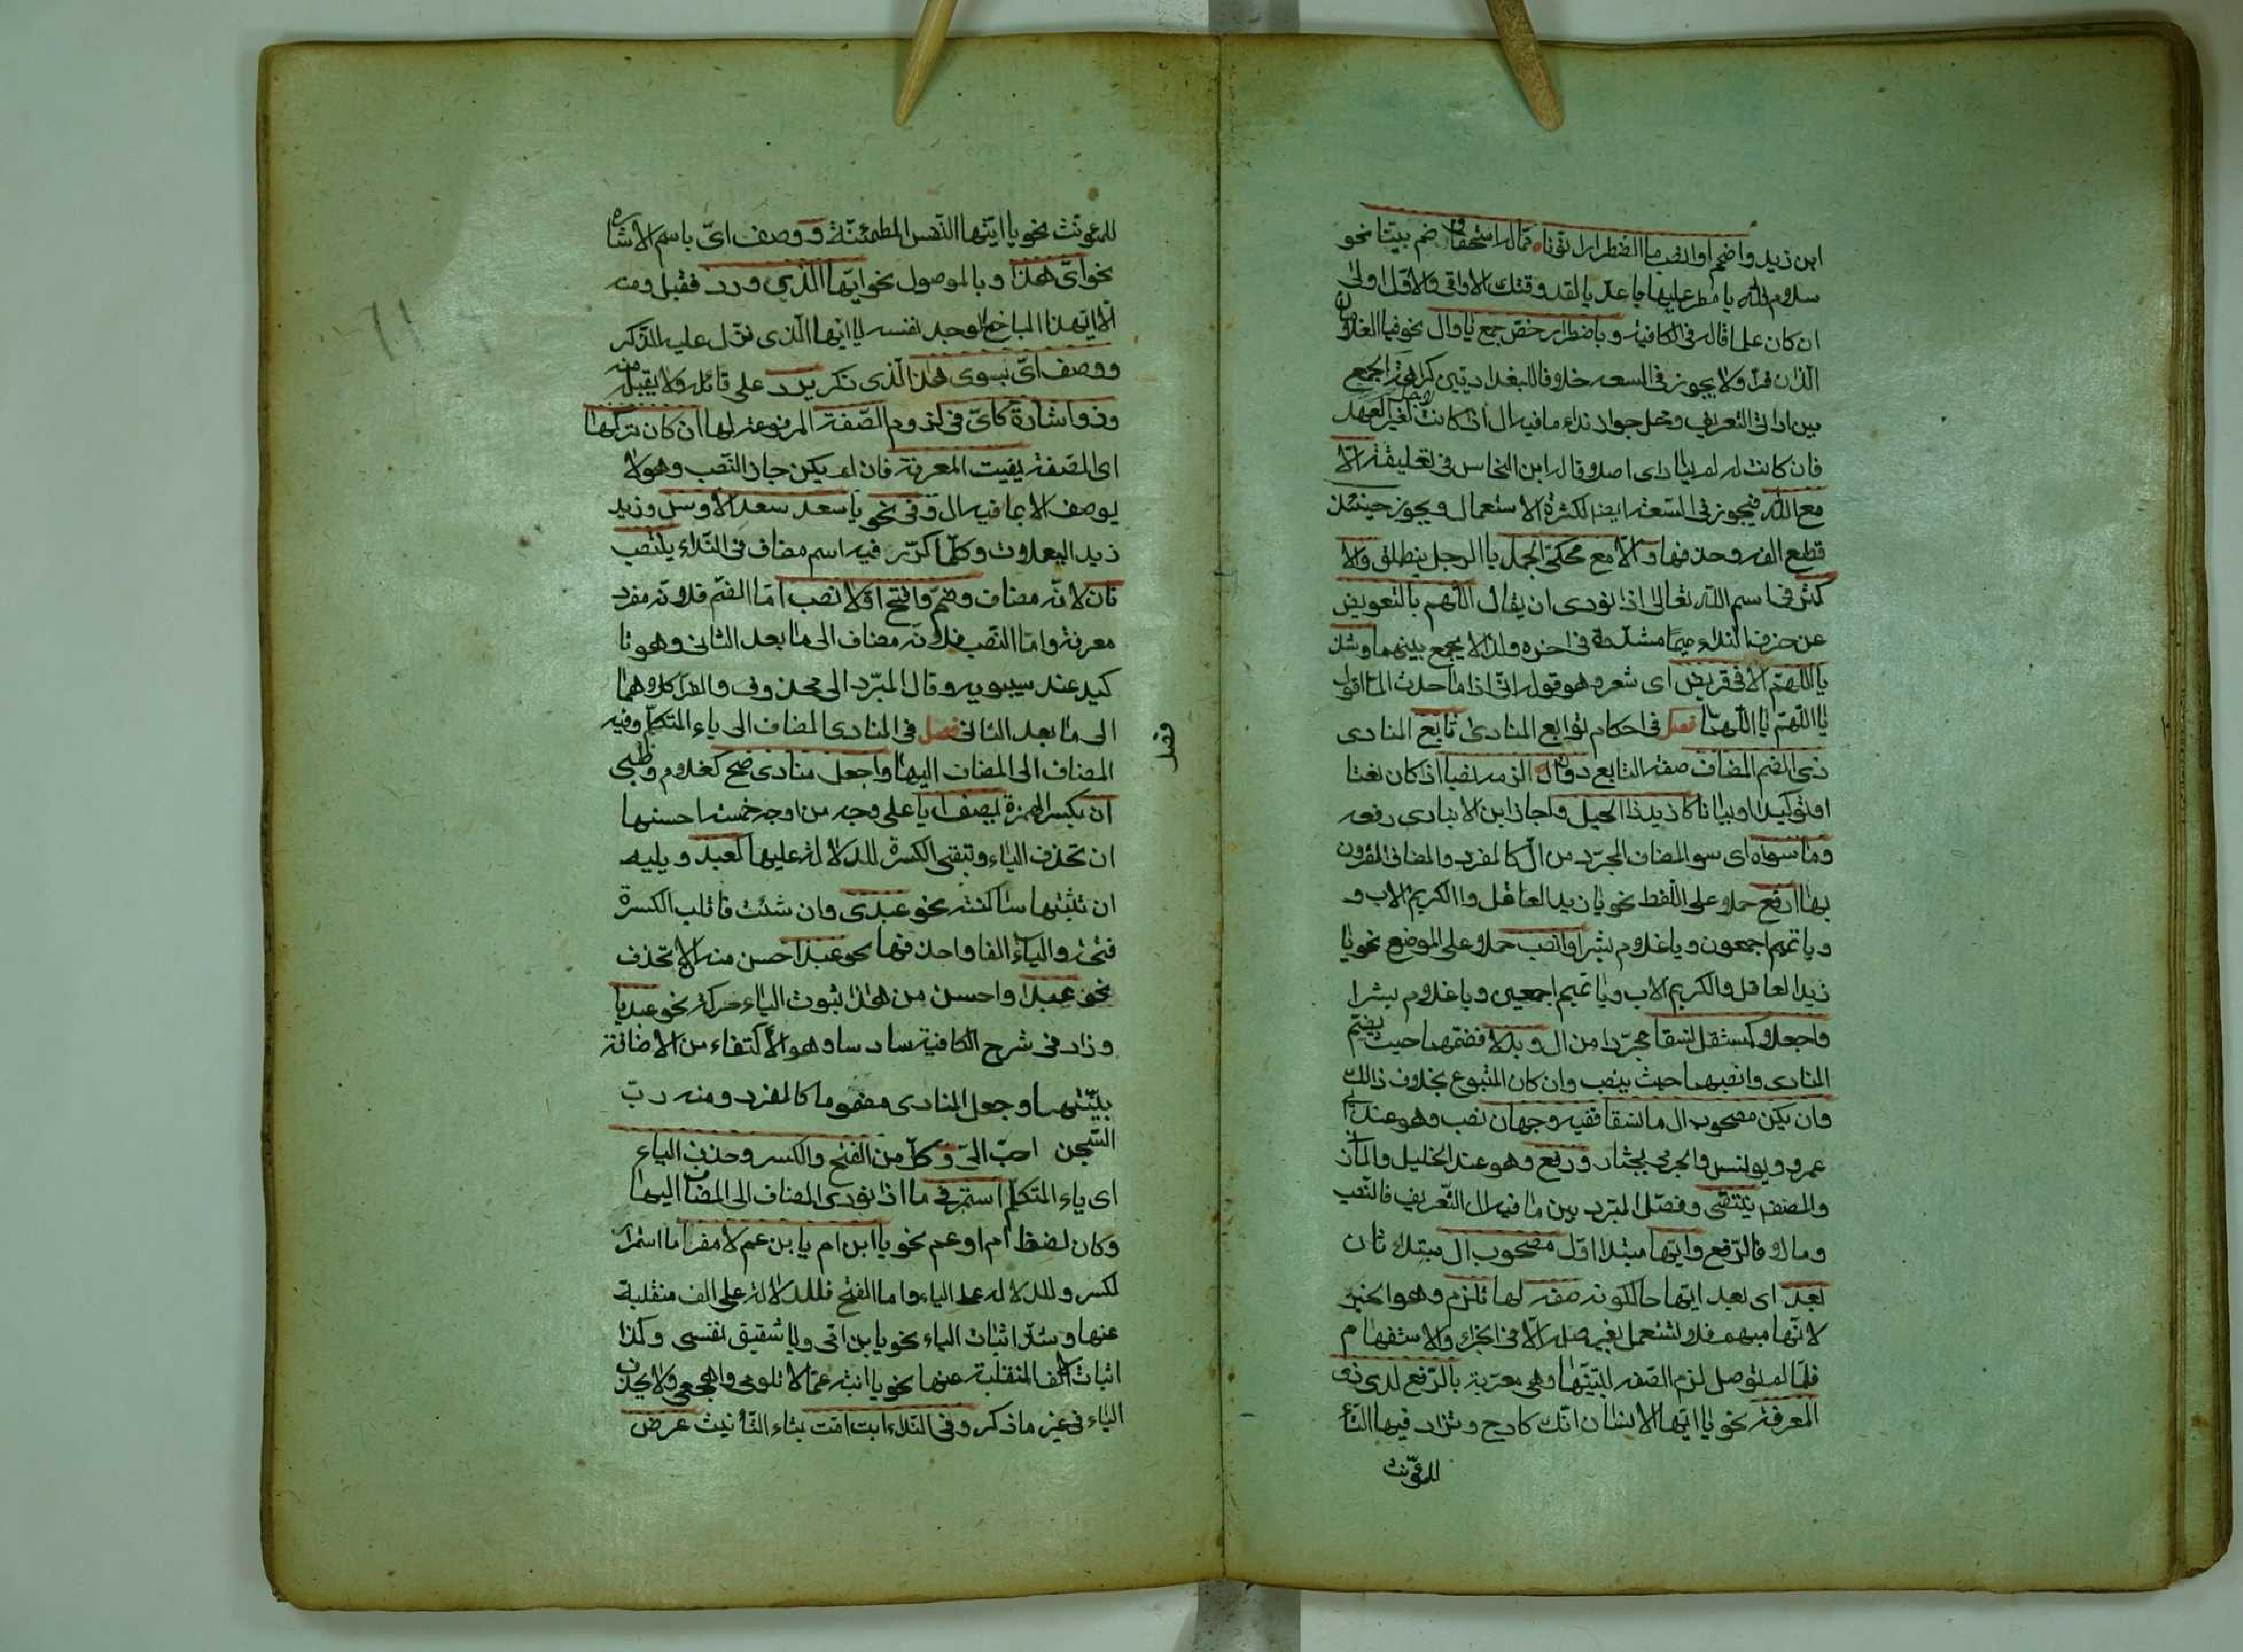 ابن زيد واضمم او انصب ما اضطرارا نونا مما له استحقاق ضم بينا نحو
سلام الله يا مطر عليها يا عديا لقد وقتك الاواقي والاول اولى
ان كان علما قاله في الكافيه وباضطرار خص جمع يا وال نحو فيا الغلامان
اللذان فرا ولا يجوز في السعه خلافا للبغداديين كراهة الجمع
بين اداتي التعريف ومحل جواز نداء ما فيه ال اذا كانت لغير العهد
فان كانت له لم ينادى اصلا قاله ابن النحاس في تعليقته الا
مع الله فيجوز في السعه ايضا لكثرة الاستعمال ويجوز حينئذ
قطع الفه وحذفها و الا مع محكى الجمل يا الرجل ينطلق والا
كثر في اسم الله تعالى اذا نودى ان يقال اللهم بالتعويض
عن حرف النداء ميما مشددة في اخره ولذا لا يجمع بينهما وشذ
يا اللهم الا في قريض اى شعر وهو قوله انى اذا ما حدث الما اقول
يا اللهم يا اللهما فصل في احكام توابع المنادى تابع المنادى
ذى الضم المضاف صفة التابع دون ال الزمه نصبا اذ كان نعتا
او توكيدا او بيانا كازيد ذا الحيل واجاز ابن الانبارى رفعه
وما سواه اى سو المضاف المجرد من ال كالمفرد والمضاف المقرون
بها ارفع حملا على اللفظ نحو يا زيد العاقل وا الكريم الاب و
ويا تميم اجمعون ويا غلام بشر او انصب حملا على الموضع نحو يا
زيد العاقل والكريم الاب ويا تميم اجمعين ويا غلام بشرا
واجعلا كمستقل نسقا مجردا من ال وبدلا فضمهما حيث يضم
المنادى وانصبهما حيث ينصب وان كان المتبوع بخلاف ذالك
وان يكن مصحوب ال ما نسقا ففيه وجهان نصب وهو عند ابى
عمرو ويونس والجرمى يختار ورفع وهو عند الخليل والمازنى
والمصنف ينتقى وفصل المبرد بين ما فيه ال التعريف فالنصب
وما لا فالرفع وايها مبتدا اول مصحوب ال مبتداء ثان
بعد اى بعد ايها حالكونه صفه لها تلزم وهو الخبر
لانها مبهمه فلا تستعمل بغير صله الا في الجزاء والاستفهام
فلما لم توصل لزم الصفه لتبينها وهى معربة بالرفع لدى ذى
المعرفة نحو يا ايها الانسان انك كادح وتزاد فيها التاء
للمؤنث
للمؤنث نحو يا ايتها النفس المطمئنة ووصف اى باسم الاشاره
نحو اى هذا وبالموصول نحو ايها الذي ورد فقبل ومنه
الا ايهذا الباخع الوجد نفسه يا ايها الذى نزل عليه الذكر
ووصف اى بسوى هذا الذى ذكر يرد على قائله ولا يقبل منه
وذو اشارة كاى في لزوم الصفة المرفوعه لها ان كان تركها
اى الصفة يفيت المعرفة فان لم يكن جاز النصب وهو لا
يوصف الا بما فيه ال وفى نحو يا سعد سعد الاوس وزيد
زيد اليعملات وكلما كرر فيه اسم مضاف في النداء ينتصب
ثان لانه مضاف وضم وافتح اولا نصب اما الضم فلانه مفرد
معرفة واما النصب فلانه مضاف الى ما بعد الثانى وهو تا
كيد عند سيبويه وقال المبرد الى محذوف والفراء كلاهما
الى ما بعد الثانى فصل في المنادى المضاف الى ياء المتكلم وفيه
فصل
المضاف الى المضاف اليها واجعل منادى صح كغلام وظبى
ان يكسر الهمزة يضف ليا على وجه من اوجه خمسة احسنها
ان تحذف الياء وتبقى الكسرة للدلالة عليها كعبد ويليه
ان تثبتها ساكنة نحو عبدى وان شئت فاقلب الكسرة
فتحه والياء الفا واحذفها نحو عبد احسن منه الا تحذف
نحو عبدا واحسن من هذا ثبوت الياء حركة نحو عبديا
وزاد فى شرح الكافية سادسا وهو الاكتفاء من الاضافة
بنيتها وجعل المنادى مضموما كالمفرد ومنه رب
السجن احب الى وكل من الفتح والكسر وحذف الياء
اى ياء المتكلم استمر في ما اذا نودى المضاف الى المضاف اليها
وكان لفظ ام او عم نحو يا ابن ام يا بن عم لا مفر اما استمرار
لكسر وللدلاله على الياء واما الفتح فللدلالة على الف منقلبة
عنها وشذ اثبات الياء نحو يا بن امى ويا شقيق نفسى وكذا
اثبات الف المنقلبة عنها نحو يا ابنة عما لا تلومى واهجعى ولا يحذف
الياء فى غير ما ذكر وفى النداء ابت امت بتاء التأنيث عرض